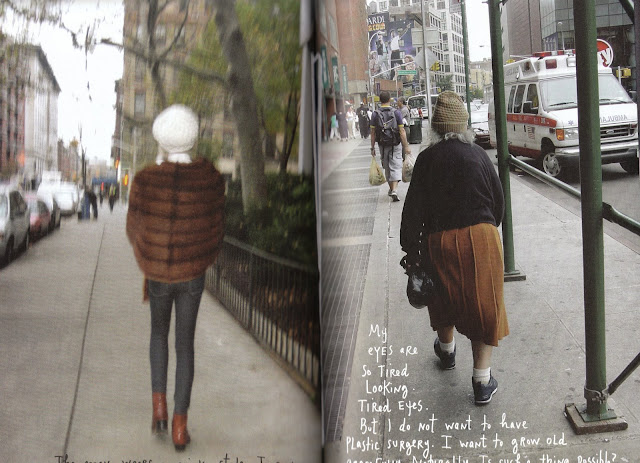 My
eyes are
so tired
looking.
Tired eyes.
But I do not want to have
plastic surgery. I want to grow old
gracefully. Naturally. Is such a thing possible?
AMBULANCE